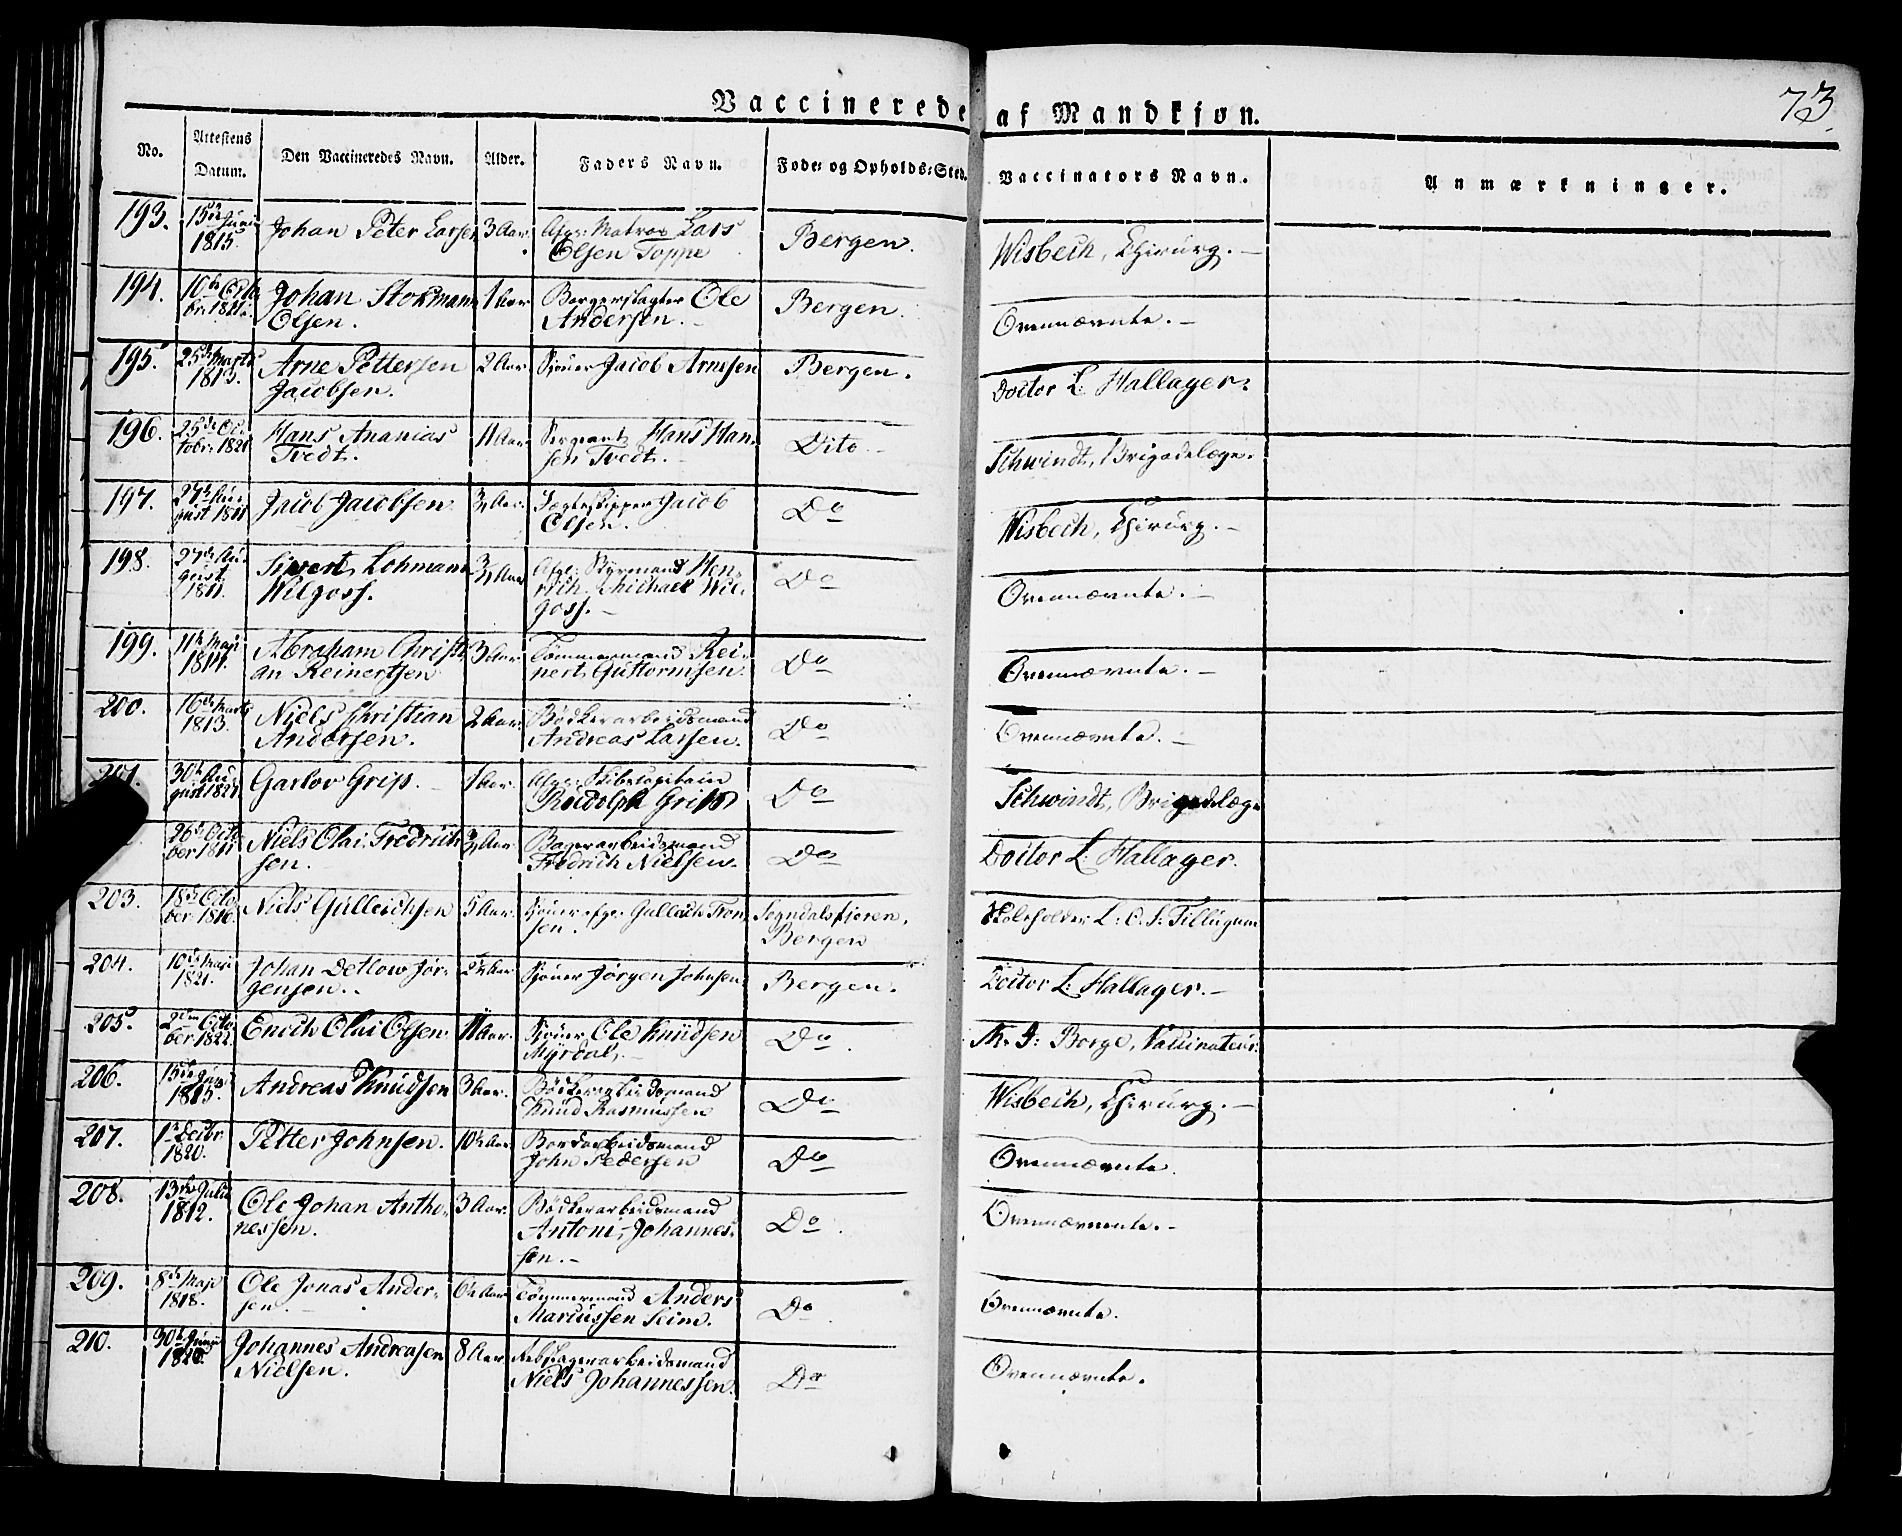 Vaccinerede af Mandkjøn.
73
No. Attestens Datum. Den Vaccineredes Navn. Alder. Faders Navn. Føde- og Opholds-Sted. Vaccinators Navn. Anmærkninger.
193. 15de Juni 1815. Johan Peter Larsen 3 Aar. Afg: Matros Lars Olsen Toppe Bergen. Wisbech, Chirurg.
194. 10de Octbr: 1821. Johan Stokmann Olsen. 1 Aar Borgerslagter Ole Andersen. Bergen. Ovennævnte.
195. 25de Marts 1813. Arne Pettersen Jacobsen. 2 Aar Sjouer Jacob Arnesen Bergen. Doctor L: Hallager.
196. 25de Octobr: 1821 Hans Ananias Tvedt. 11 Aar Sergeant Hans Hansen Tvedt. Dito Schwindt, Brigadelæge.
197. 27de August 1811 Jacob Jacobsen 3/4 Aar. Jagteskipper Jacob Olsen. Do Wisbech, Chirurg.
198. 27de August 1811 Sivert Lohmann Wilgoss. 3/4 Aar Afg: Styrmand Henrich Michael Wilgoss. Do Ovennævnte.
199. 11te Maji 1814. Abraham Christian Reinertsen 3 Aar Tømmermand Reinert Guttormsen. Do Ovennævnte.
200. 16de Marts 1813. Niels Christian Andersen. 2 Aar. Bødkerarbeidsmand Andreas Larsen. Do Ovennævnte.
201. 30te August 1821 Garlov Grip. 1 Aar. Afg: Skibscapitain Rudolph Grip Do Schwindt, Brigadelæge
26de October 1811 Niels Olai Fredrichsen. 3/4 Aar Bagerarbeidsmand Fredrich Nielsen. Do Doctor L: Hallager.
203. 18de October 1816. Niels Gullechsen 5 Aar. Sjouer afg: Gullach Tronsen. Sogndalsfjøren, Bergen Skoleholder L: C. S: Tillugum
204. 10de Maji 1821. Johan Detlow Jørgensen. 2½ Aar Sjouer Jørgen Johnsen. Bergen. Doctor L: Hallager.
205. 2den October 1822. Enich Olai Olsen 11 Aar. Sjouer Ole Knudsen Myrdal. Do M. J: Borge, Vaccinateur.
206. 15de Juni 1815. Andreas Knudsen 3 Aar. Bødkerarbeidsmand Knud Rasmussen Do Wisbech, Chirurg.
207. 1te Decbr 1820. Petter Johnsen. 10½ Aar Bordarbeidsmand John Pedersen Do Ovennævnte.
208. 13de Julii 1812. Ole Johan Anthonessen. 3 Aar. Bødkerarbeidsmand Antoni Johannessen. Do Ovennævnte.
209. 8de Maji 1818. Ole Jonas Andersen. 6½ Aar Tømmermand Anders Marcussen Seim. Do Ovennævnte.
210. 30te Juni 1820. Johannes Andreasen Nielsen. 8 Aar Rebslagerarbeidsmand Niels Johannessen. Do Ovennævnte.